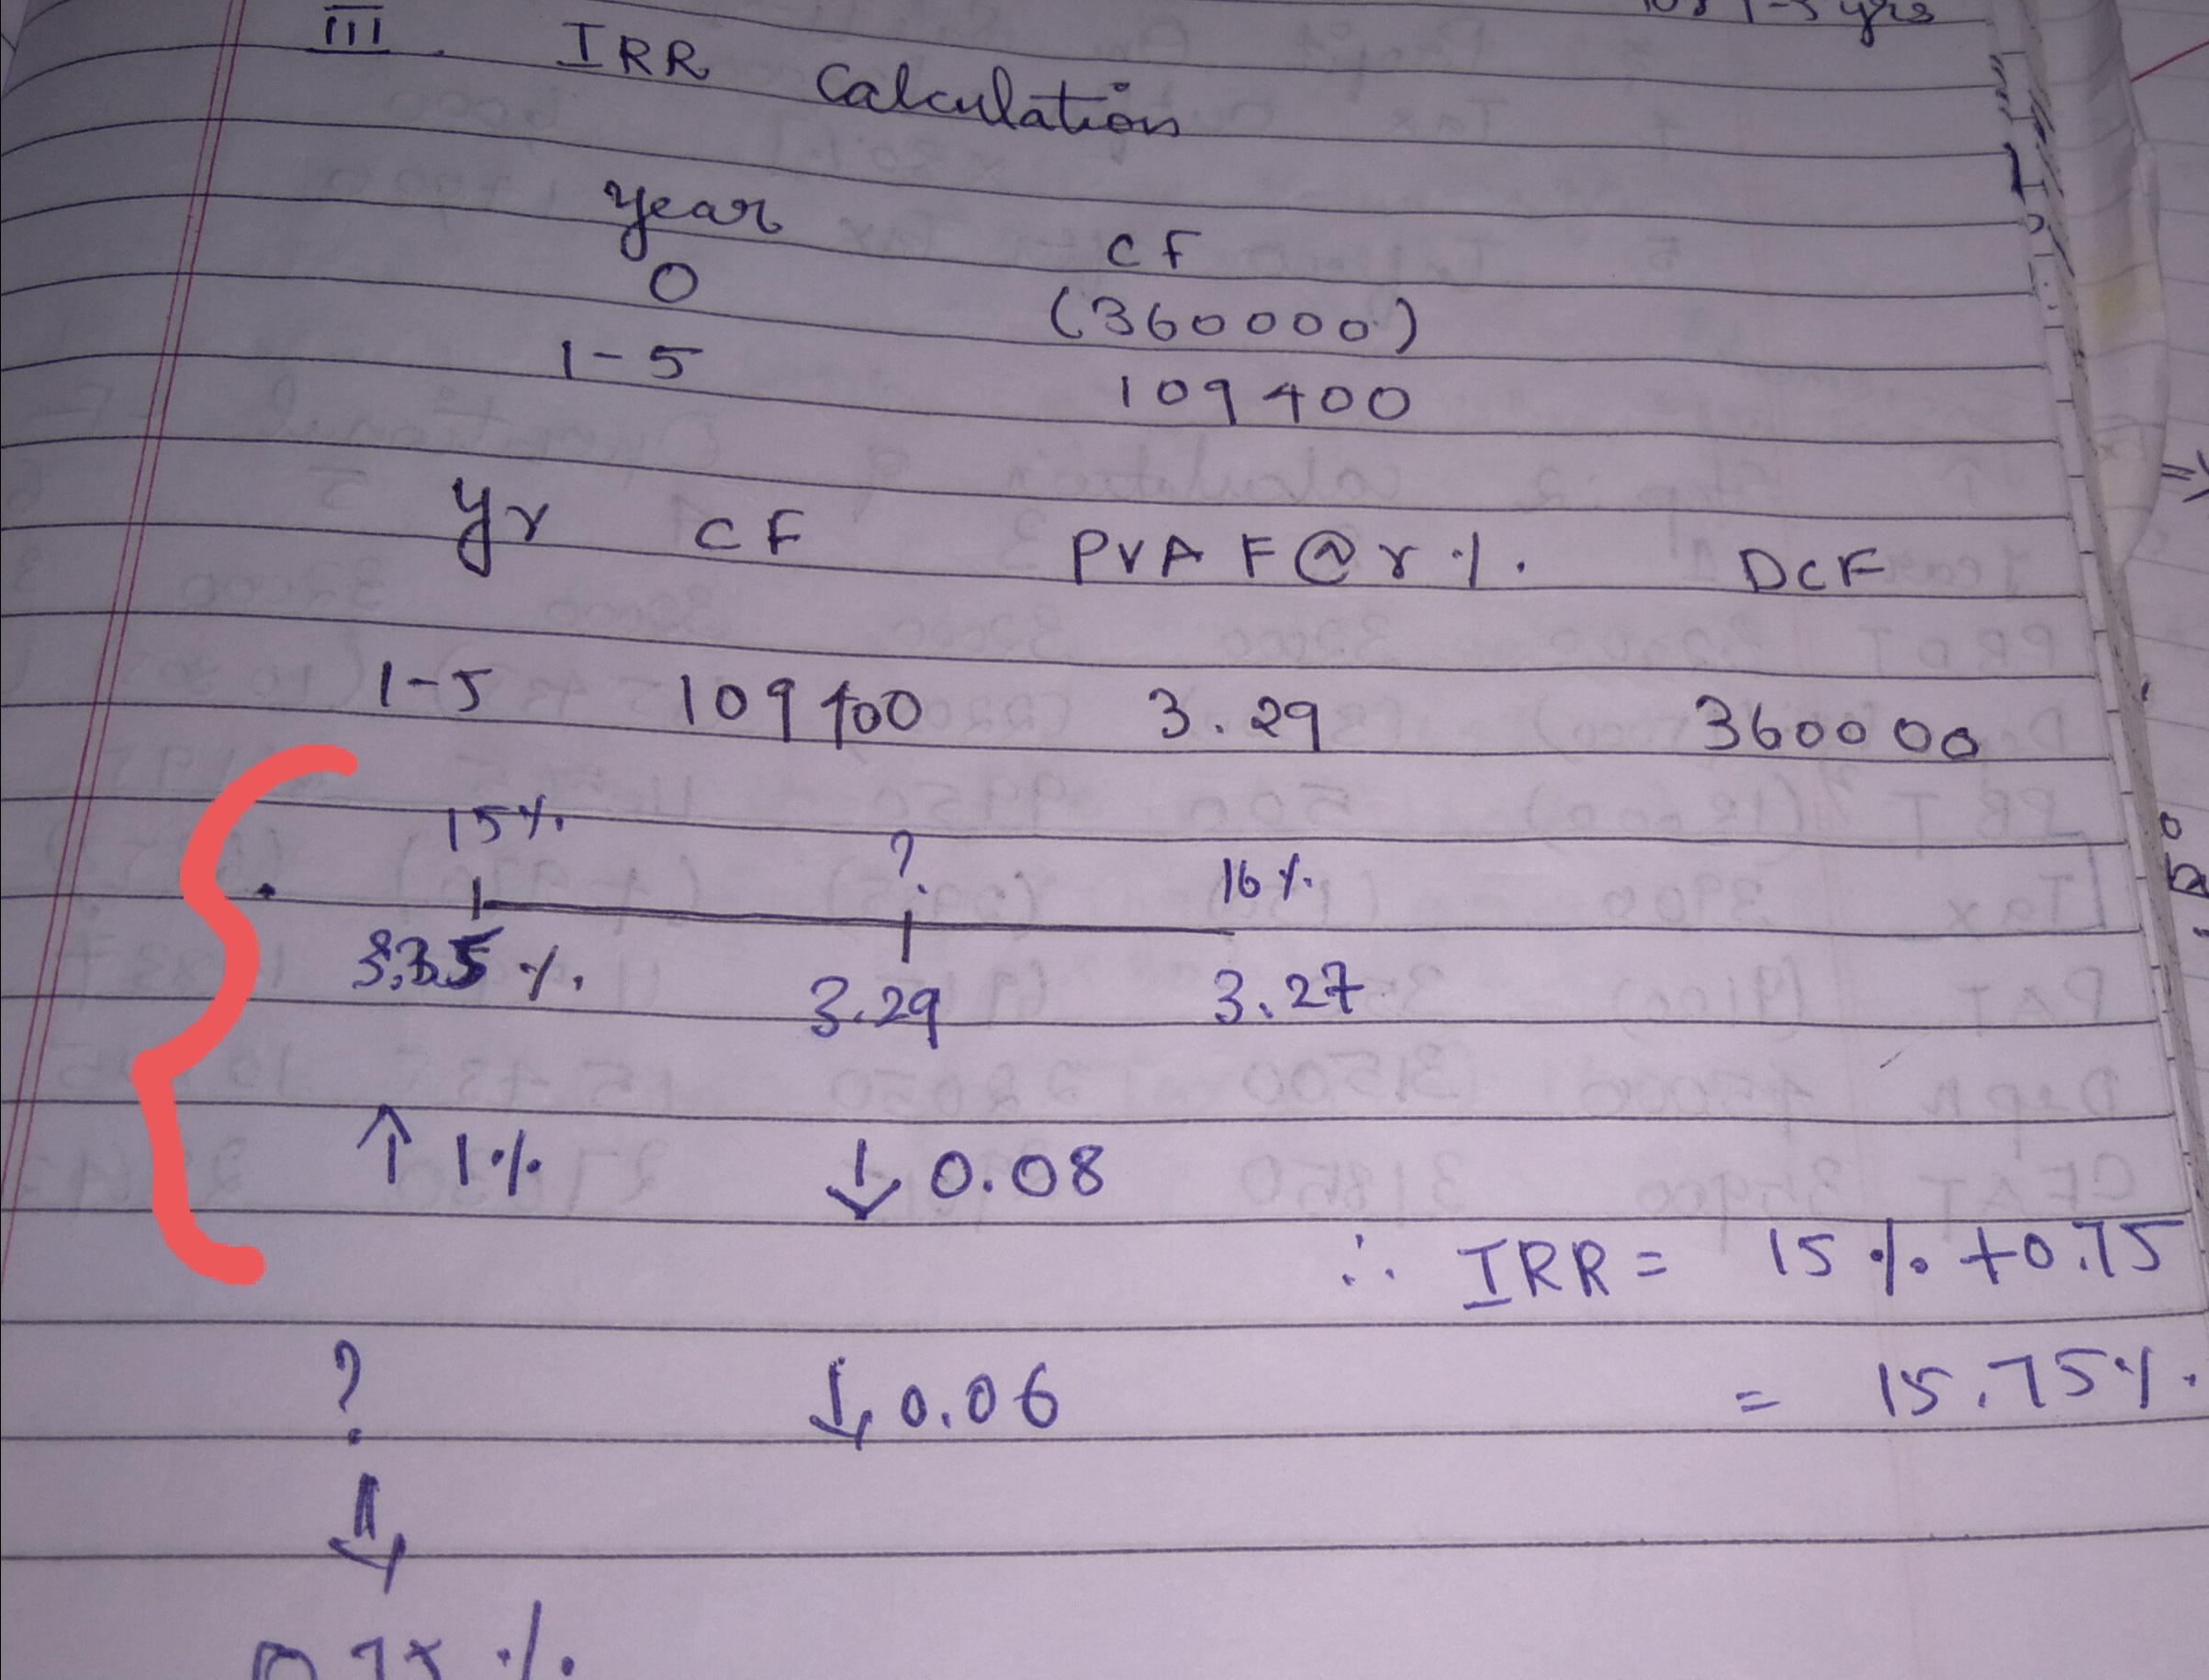 III. IRR Calculation
year CF
0 (360000)
1-5 109400
yr CF PVAF@r%. DCF
1-5 109400 3.29 360000
15% ? 16%
3.35%. 3.29 3.27
↑ 1% ↓ 0.08
∴ IRR = 15% +0.75
? ↓ 0.06
= 15.75%.
↓